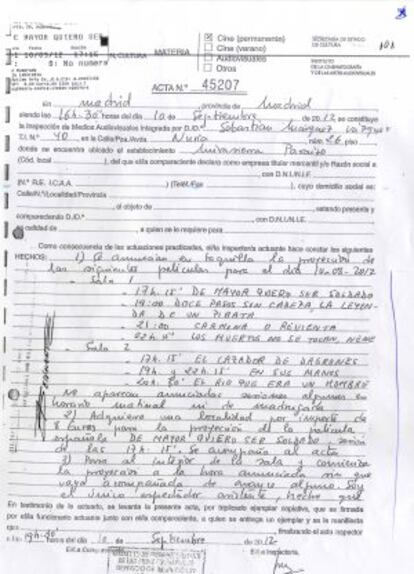 E MAYOR QUIERO SE
10/09/12 17:15
S: No numera
CULTURA
MATERIA
Cine (permanente)
Cine (verano)
Audiovisuales
Otros
SECRETARIA DE ESTADO
DE CULTURA
INSTITUTO
DE LA CINEMATOGRAFIA
Y DE LAS ARTES AUDIOVISUALES
101
ACTA N.º 45207
En madrid provincia de Madrid
siendo las 16h.30' horas del día 10 de Septiembre de 2012 se constituye
la Inspección de Medios Audiovisuales integrada por D./D.ª Sebastian
T.I. N.º 40 en la Calle/Pza./Avda. Nuria núm. 26 piso
donde se encuentra ubicado el establecimiento
(Cód. local ), del que el/la compareciente declara como empresa titular mercantil y/o Razón social a
con D.N.I./N.I.F.
(N.º R.E. I.C.A.A. ) (Teléf./Fax ), cuyo domicilio social es:
Calle/N.º/Localidad/Provincia
, al objeto de , estando presente y
compareciendo D./D.ª , con D.N.I./N.I.E.
en calidad de , a quien se le requiere para
Como consecuencia de las actuaciones practicadas, el/la inspector/a actuante hace constar los siguientes
HECHOS: 1) Se anuncian en taquilla la proyección de
las siguientes películas para el día 10-09-2012
- Sala 1
- 17h.15' DE MAYOR QUIERO SER SOLDADO
- 19:00 DOCE PASOS SIN CABEZA, LA LEYEN-
DA DE UN PIRATA
- 21:00 CARMINA O REVIENTA
- 22h LOS MUERTOS NO SE TOCAN, NENE
Sala 2
- 17h.15' EL CAZADOR DE DRAGONES
- 19h y 22h.15' EN SUS MANOS
- 20h.30' EL RIO QUE ERA UN HOMBRE
No aparecen anunciadas sesiones algunas en
horario matinal ni de madrugada
2) Adquiero una localidad por importe de
8 euros para la proyección de la película
española DE MAYOR QUIERO SER SOLDADO sesión
de las 17h.15'. Se acompaña al acta
3) Paso al interior de la sala y comienza
la proyección a la hora anunciada sin que
vaya acompañada de avance alguno. Soy
el único espectador asistente, hecho que
En testimonio de lo actuado, se levanta la presente acta, por triplicado ejemplar copiativo, que es firmada
por el/la funcionario actuante junto con el/la compareciente, a quien se entrega un ejemplar y se le manifiesta
que , finalizando el acto inspector
a las 19h.30' del día 10 de Septiembre de 2012
El/La Compareciente El/La Inspector/a,